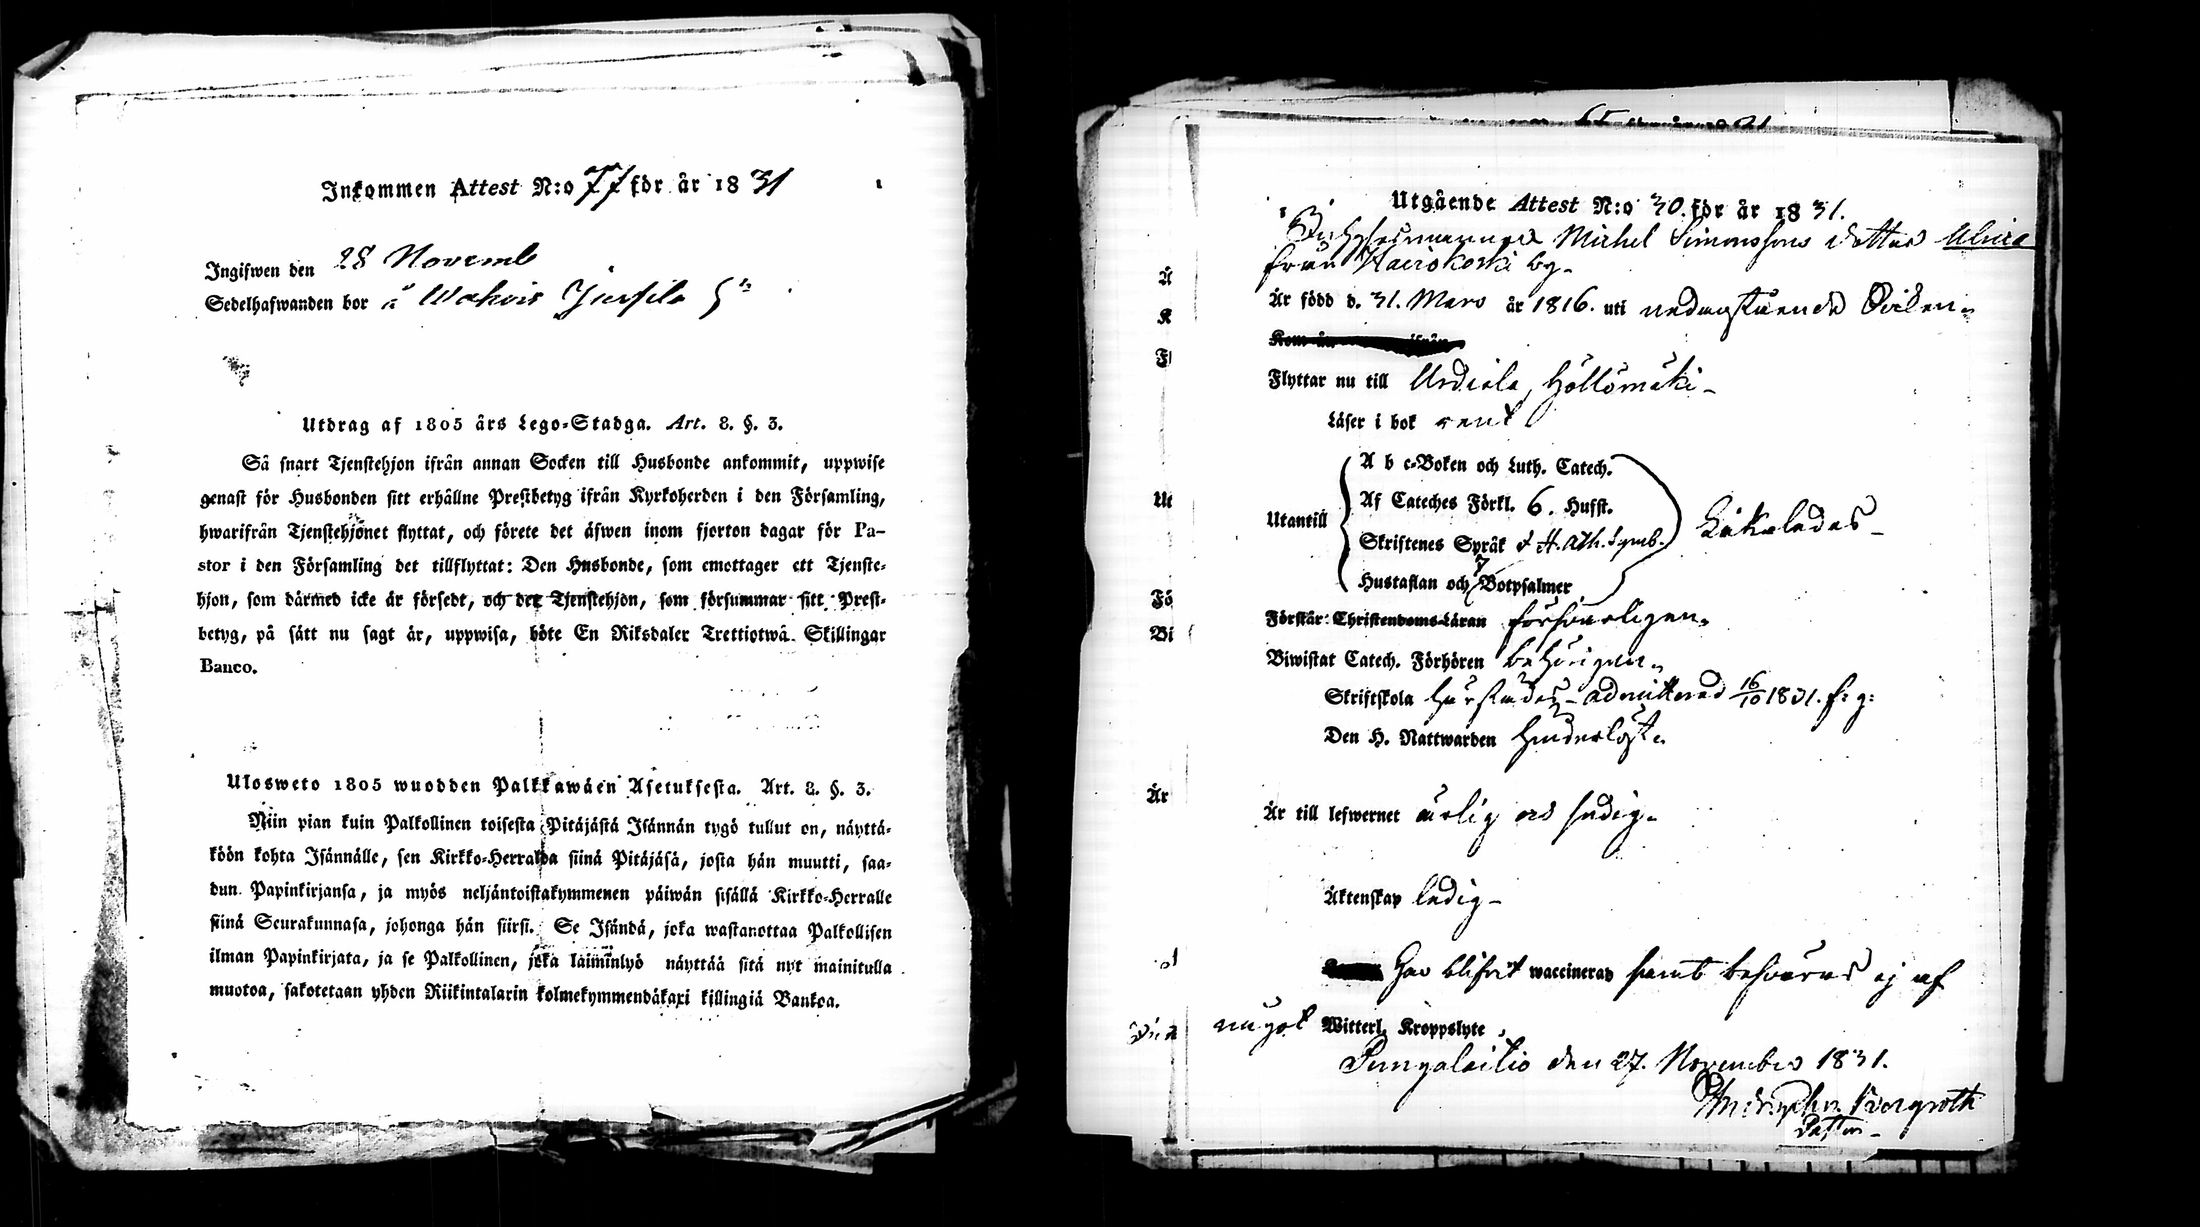 Inkommen Attest N:o 77 för år 1831
Ingifwen den 28 Novemb
Sedelhafwanden bor å
Utdrag af 1805 års Lego-Stadga. Art. 8. §. 3.
Så snart Tjenstehjon ifrån annan Socken till Husbonde ankommit, uppwise
genast för Husbonden sitt erhållne Prestbetyg ifrån Kyrkoherden i den Församling,
hwarifrån Tjenstehjonet flyttat, och förete det äfwen inom fjorton dagar för Pa-
stor i den Församling det tillflyttat: Den Husbonde, som emottager ett Tjenste-
hjon, som därmed icke är försedt, och det Tjenstehjon, som försummar sitt Prest-
betyg, på sätt nu sagt är, uppwisa, böte En Riksdaler Trettiotwå Skillingar
Banco.
Ulosweto 1805 wuodden Palkkawäen Asetuksesta. Art. 8. §. 3.
Niin pian kuin Palkollinen toisesta Pitäjästä Isännän tygö tullut on, näyttä-
köön kohta Isännälle, sen Kirkko-Herralda siinä Pitäjäsä, josta hän muutti, saa-
dun Papinkirjansa, ja myös neljäntoistakymmenen päiwän sisällä Kirkko-Herralle
siinä Seurakunnasa, johonga hän siirsi. Se Isändä, joka wastanottaa Palkollisen
ilman Papinkirjata, ja se Palkollinen, joka laiminlyö näyttää sitä nyt mainitulla
muotoa, sakotetaan yhden Riikintalarin kolmekymmendäkaxi killingiä Bankoa.
Utgående Attest N:o 30. för år 1831.
Michel Simonssons dotter Ulrica
från Kairokoski by-
Är född d. 31. Mars år 1816. uti nedanstående
Flyttar nu till Urdiala, Höllömäki-
Läser i bok rent
A b c-Boken och Luth. Catech.
Af Cateches Förkl. 6. Hufst.
Utantill
Skriftenes Språk & H. Ath. Symb.
Hustaflan och 7 Botpsalmer
Likaledes-
Förstår Christendoms-Läran försvarligen.
Biwistat Catech. Förhören behörigen.
Skriftskola härstädes- admitterad 16/10 1831. f: g:
Den H. Nattwarden hinderlöst.
Är till lefwernet ärlig och sedig.
Äktenskap ledig-
Har blifvit waccinerad samt besväras ej af
något Witterl. Kroppslyte.
Pungalaitio den 27. November 1831.
Bergroth
Pastor-